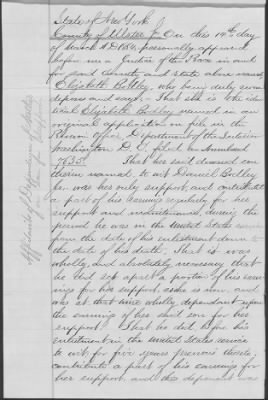 State of New York
County of Ulster } On this 19th day
of March A.D. 1884, personally appeared
before me a Justice of the Peace in and
for said County and state above named,
Elizabeth Bolley, who being duly sworn
deposes and says: That she is the iden
tical Elizabeth Bolley named in an
original application on file in the
Pension Office, Department of the Interior
Washington D.C. filed as numbered
7635. That her said deceased son
therein named, to wit Daniel Bolley
was her only support and contributed
a part of his earnings regularly for her
support and maintenance, during the
period he was in the United States service
from the date of his enlistment down to
the date of his death; That it was
wholly, and absolutely necessary that
he did set apart a portion of his earn
ings for her support, as she is now, and
was at that time wholly dependent upon
the earnings of her said son for her
support. That he did before his
enlistment in the United States service
to wit, for five years previous thereto,
contribute a part of his earnings for
her support, and this deponent was
Affidavit of Dependency of Mother